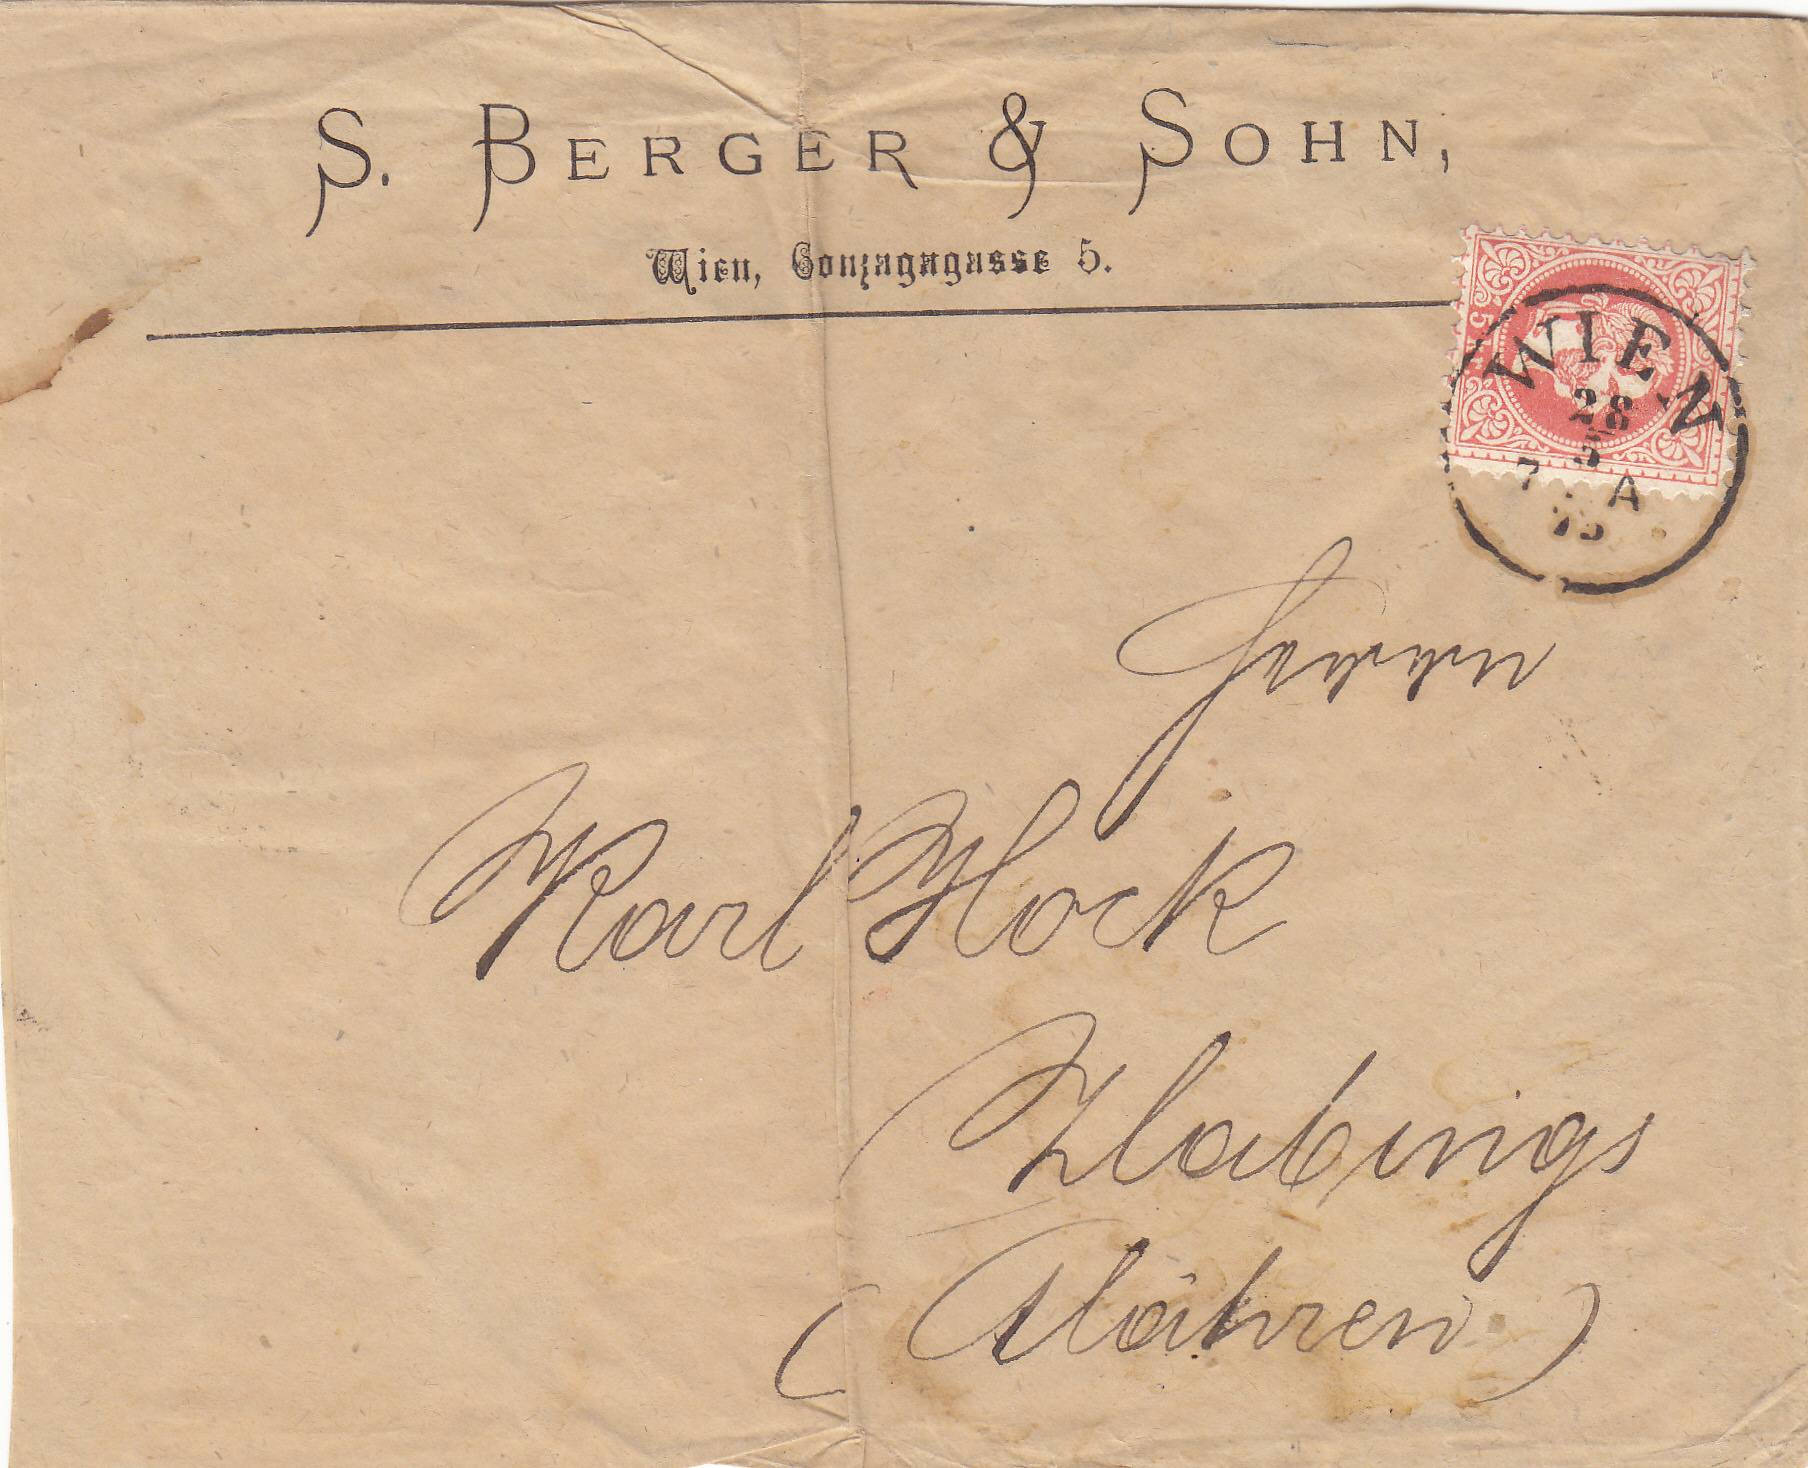 S. BERGER & SOHN,
Wien, Gonzagagasse 5.
WIEN
28
5
7. A
75
Herrn
Karl Hock
Zlabings
(Mähren)